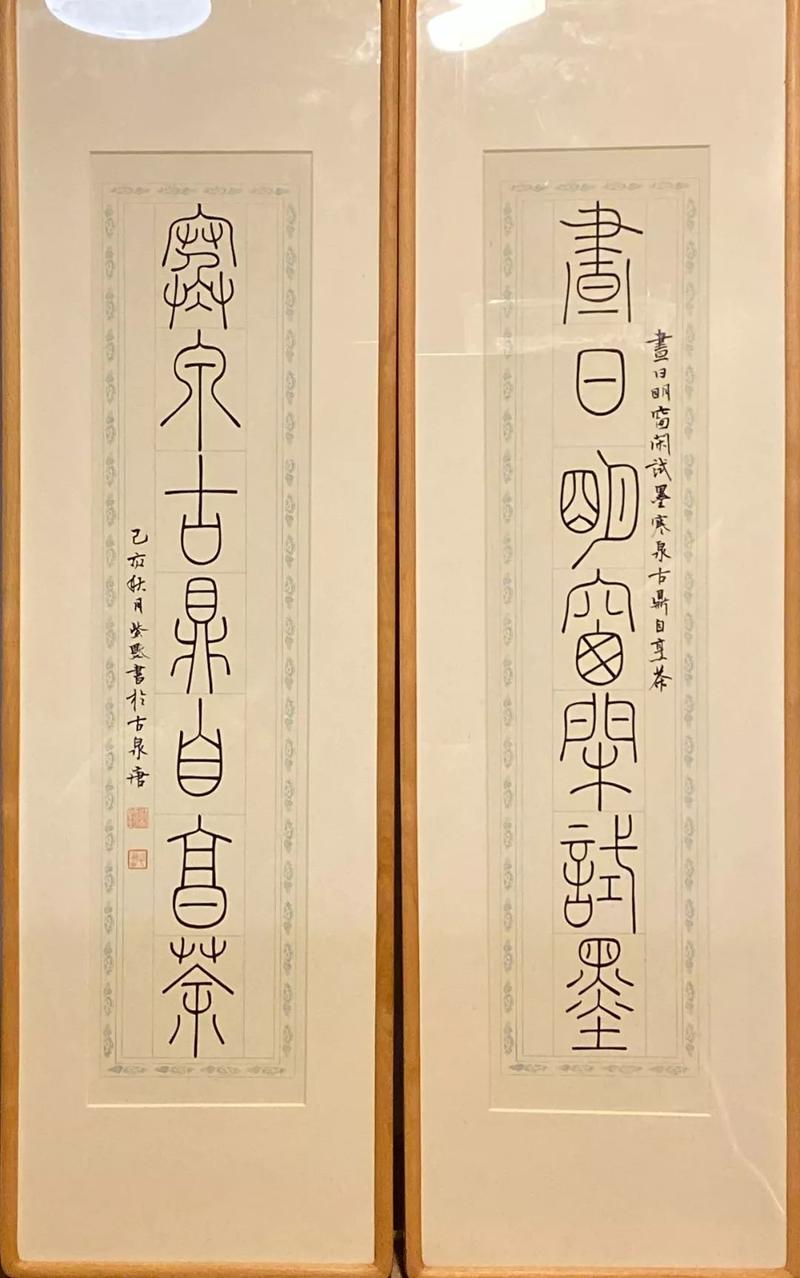 晝日明窗閑試墨
晝日明窗闲試墨寒泉古鼎自享茶
寒泉古鼎自亯茶
己亥秋月紫熙書於古泉唐